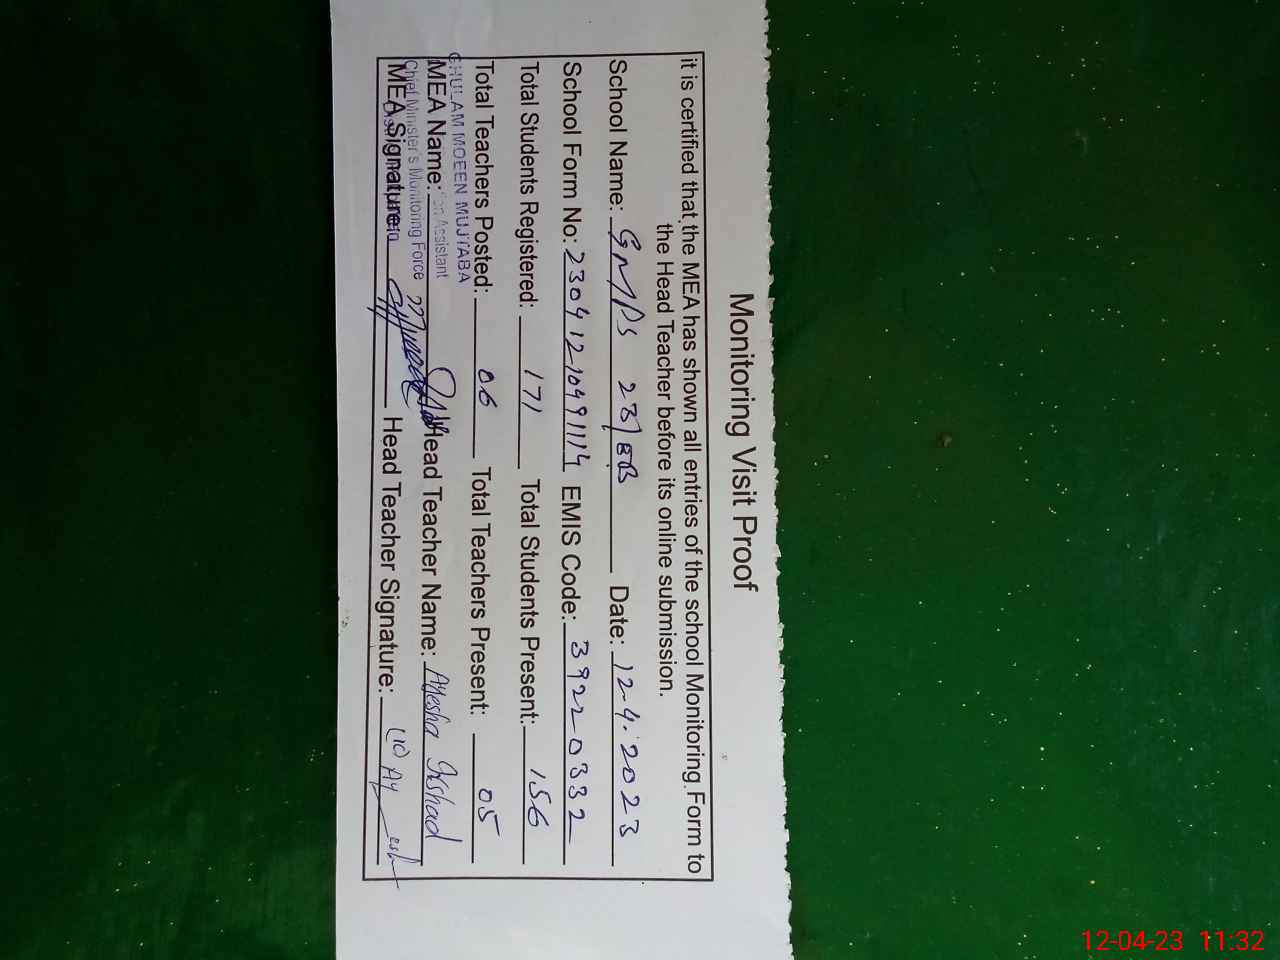 Monitoring Visit Proof
it is certified that the MEA has shown all entries of the school Monitoring Form to
the Head Teacher before its online submission.
School Name: GMPS 23/8B Date: 12-4-2023
School Form No: 230412-10491114 EMIS Code: 39220332
Total Students Registered: 171 Total Students Present: 156
Total Teachers Posted: 06 Total Teachers Present: 05
GHULAM MOEEN MUJTABA
MEA Name: Assistant Head Teacher Name: Ayesha Irshad
Chief Minister's Monitoring Force
MEA Signature Head Teacher Signature:
12-04-23 11:32